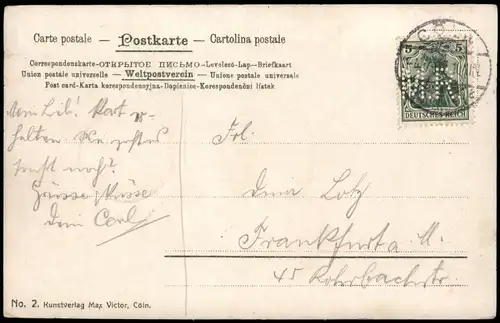 Carte postale – Postkarte – Cartolina postale
Correspondenskarte-ОТКРЫТОЕ ПИСЬМО-Levelező-Lap-Briefkaart
Union postale universelle – Weltpostverein – Unione postale universale
Post card-Karta korespondencyjna-Dopisnice-Korespondenční lístek
5 5
DEUTSCHES REICH
Mein Lieb! Kart
halten.
noch?
Grüsse, Küsse
Dein Carl
Frl.
Lotz
Frankfurt a. M.
45 Rohrbachstr
No. 2. Kunstverlag Max Victor, Cöln.